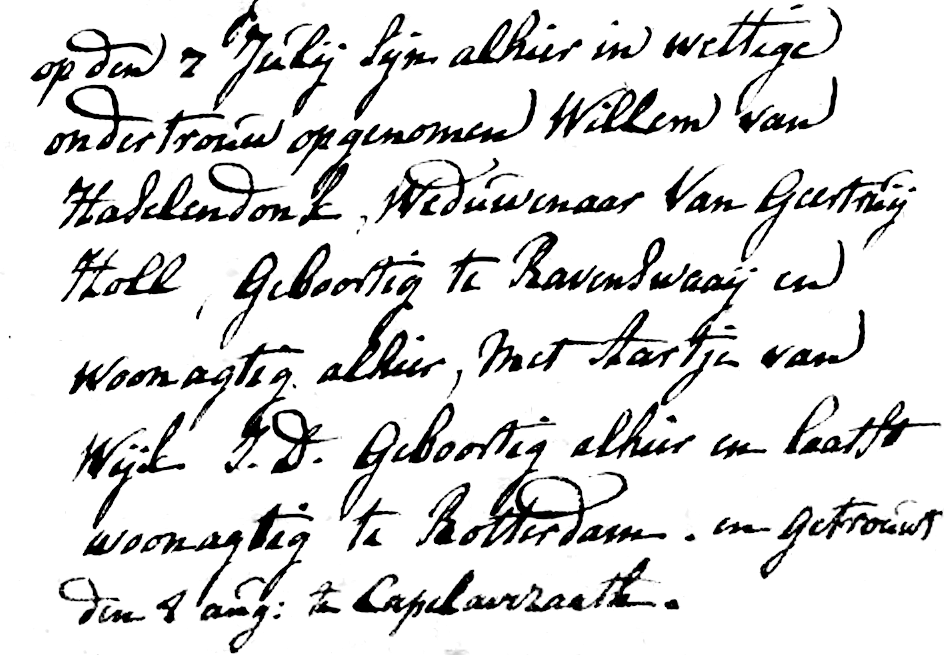 op den 7 Julij sijn alhier in wettige
ondertrouw opgenomen Willem van
Haselendonk, Weduwenaar Van Geertruij
Holl, Geboortig te Ravenswaaij en
woonagtig alhier, Met Aartje van
Wijk J.D. Geboortig alhier en laatst
woonagtig te Rotterdam. en getrouwt
den 8 aug: te Capelavezaath.